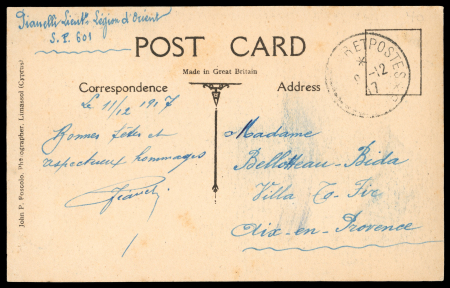 Pianelli Lieut. Légion d'Orient
S.P. 601
POST CARD
Made in Great Britain
Correspondence
Address
RET POSTES
-12
17
Le 11/12 1917
Bonnes fêtes et
respectueux hommages
Pianelli
Madame
Bellotteau-Bida
Villa To-Fir
Aix-en-Provence
John P. Foscolo, Photographer, Limassol (Cyprus)